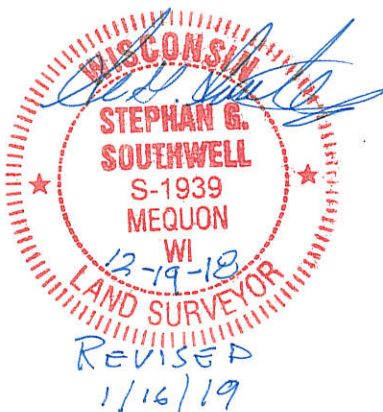 WISCONSIN
STEPHAN G.
SOUTHWELL
S-1939
MEQUON
WI
12-19-18
LAND SURVEYOR
REVISED
1/16/19